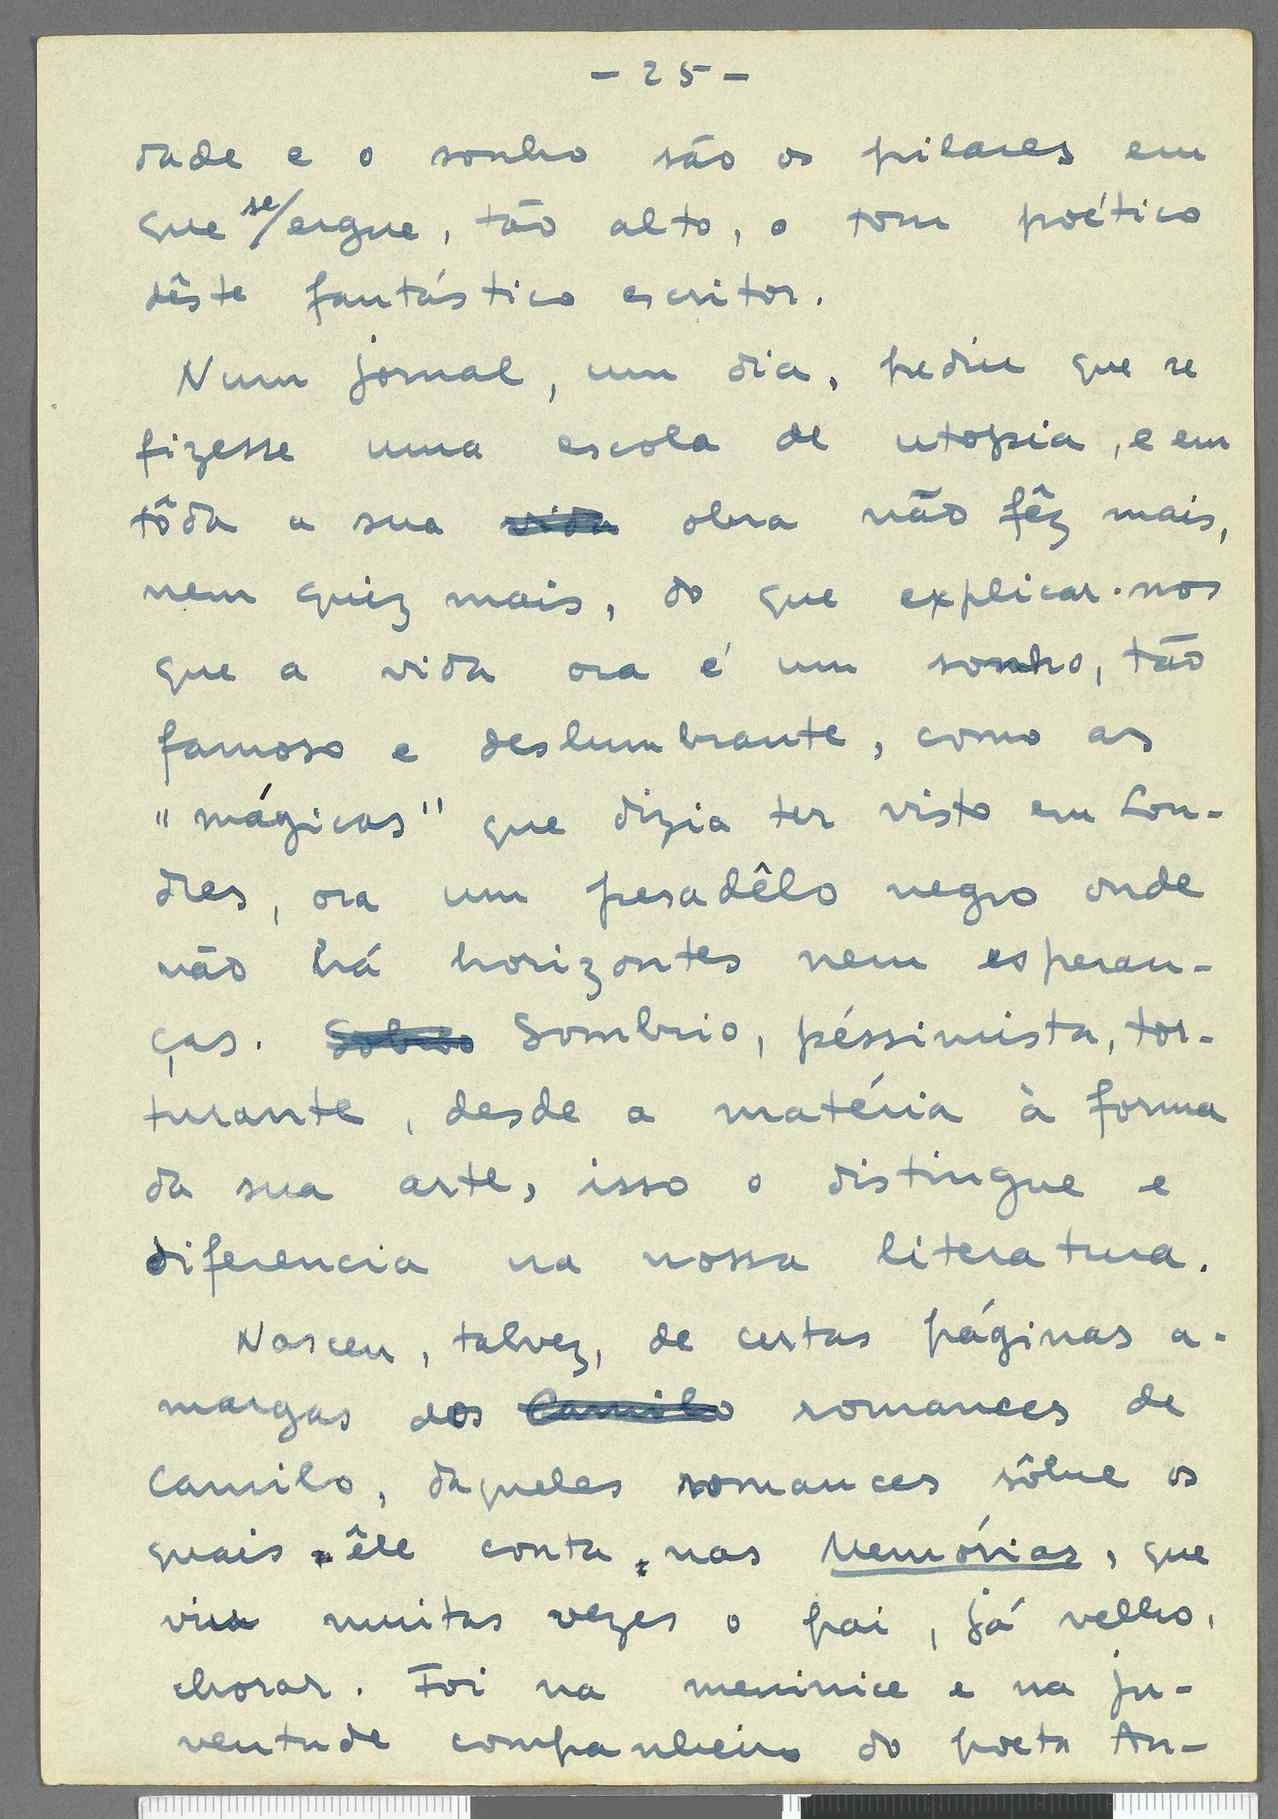 - 25 -
dade e o sonho são os pilares em
que se/ergue, tão alto, o tom poético
dêste fantástico escritor.
Num jornal, um dia, pediu que se
fizesse uma escola de utopia, e em
tôda a sua vida obra não fêz mais,
nem quiz mais, do que explicar-nos
que a vida ora é um sonho, tão
famoso e deslumbrante, como as
"mágicas" que dizia ter visto em Lon-
dres, ora um pesadêlo negro onde
não há horizontes nem esperan-
ças. Sombrio, péssimista, tor-
turante, desde a matéria à forma
da sua arte, isso o distingue e
diferencia na nossa literatura.
Nasceu, talvez, de certas páginas a-
margas dos Camilo romances de
Camilo, daqueles romances sôbre os
quais êle conta, nas Memórias, que
viu muitas vezes o pai, já velho,
chorar. Foi na meninice e na ju-
ventude companheiro do poeta An-